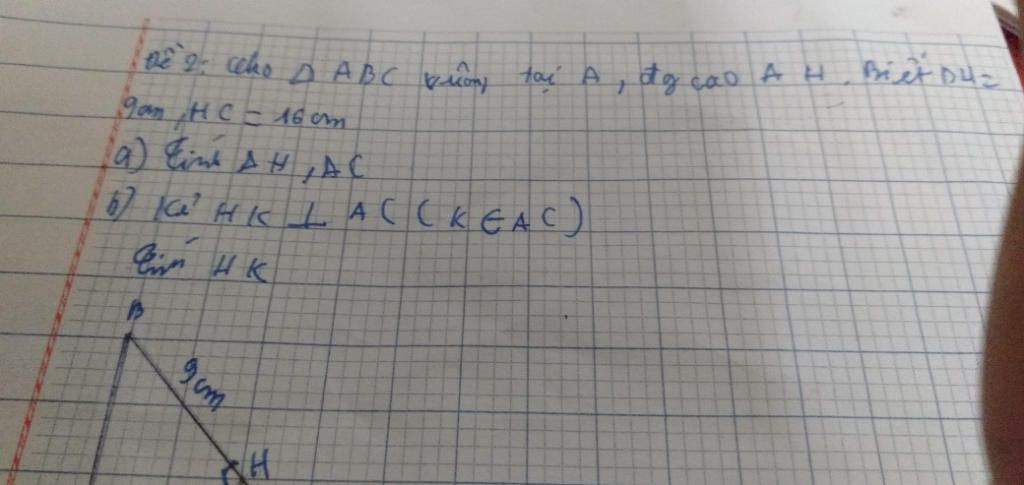 Đề 2: Cho Δ ABC vuông tại A, đg cao AH. Biết BH =
9cm, HC = 16cm
a) Tính AH, AC
b) Kẻ HK ⊥ AC (K ∈ AC)
Tính HK
B
9cm
H